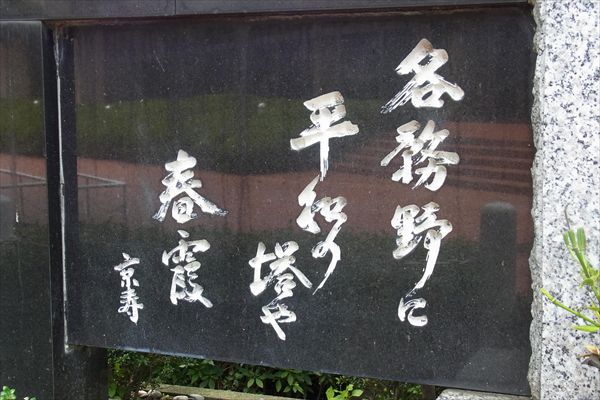 各務野に
平和の
塔や
春霞
京寿